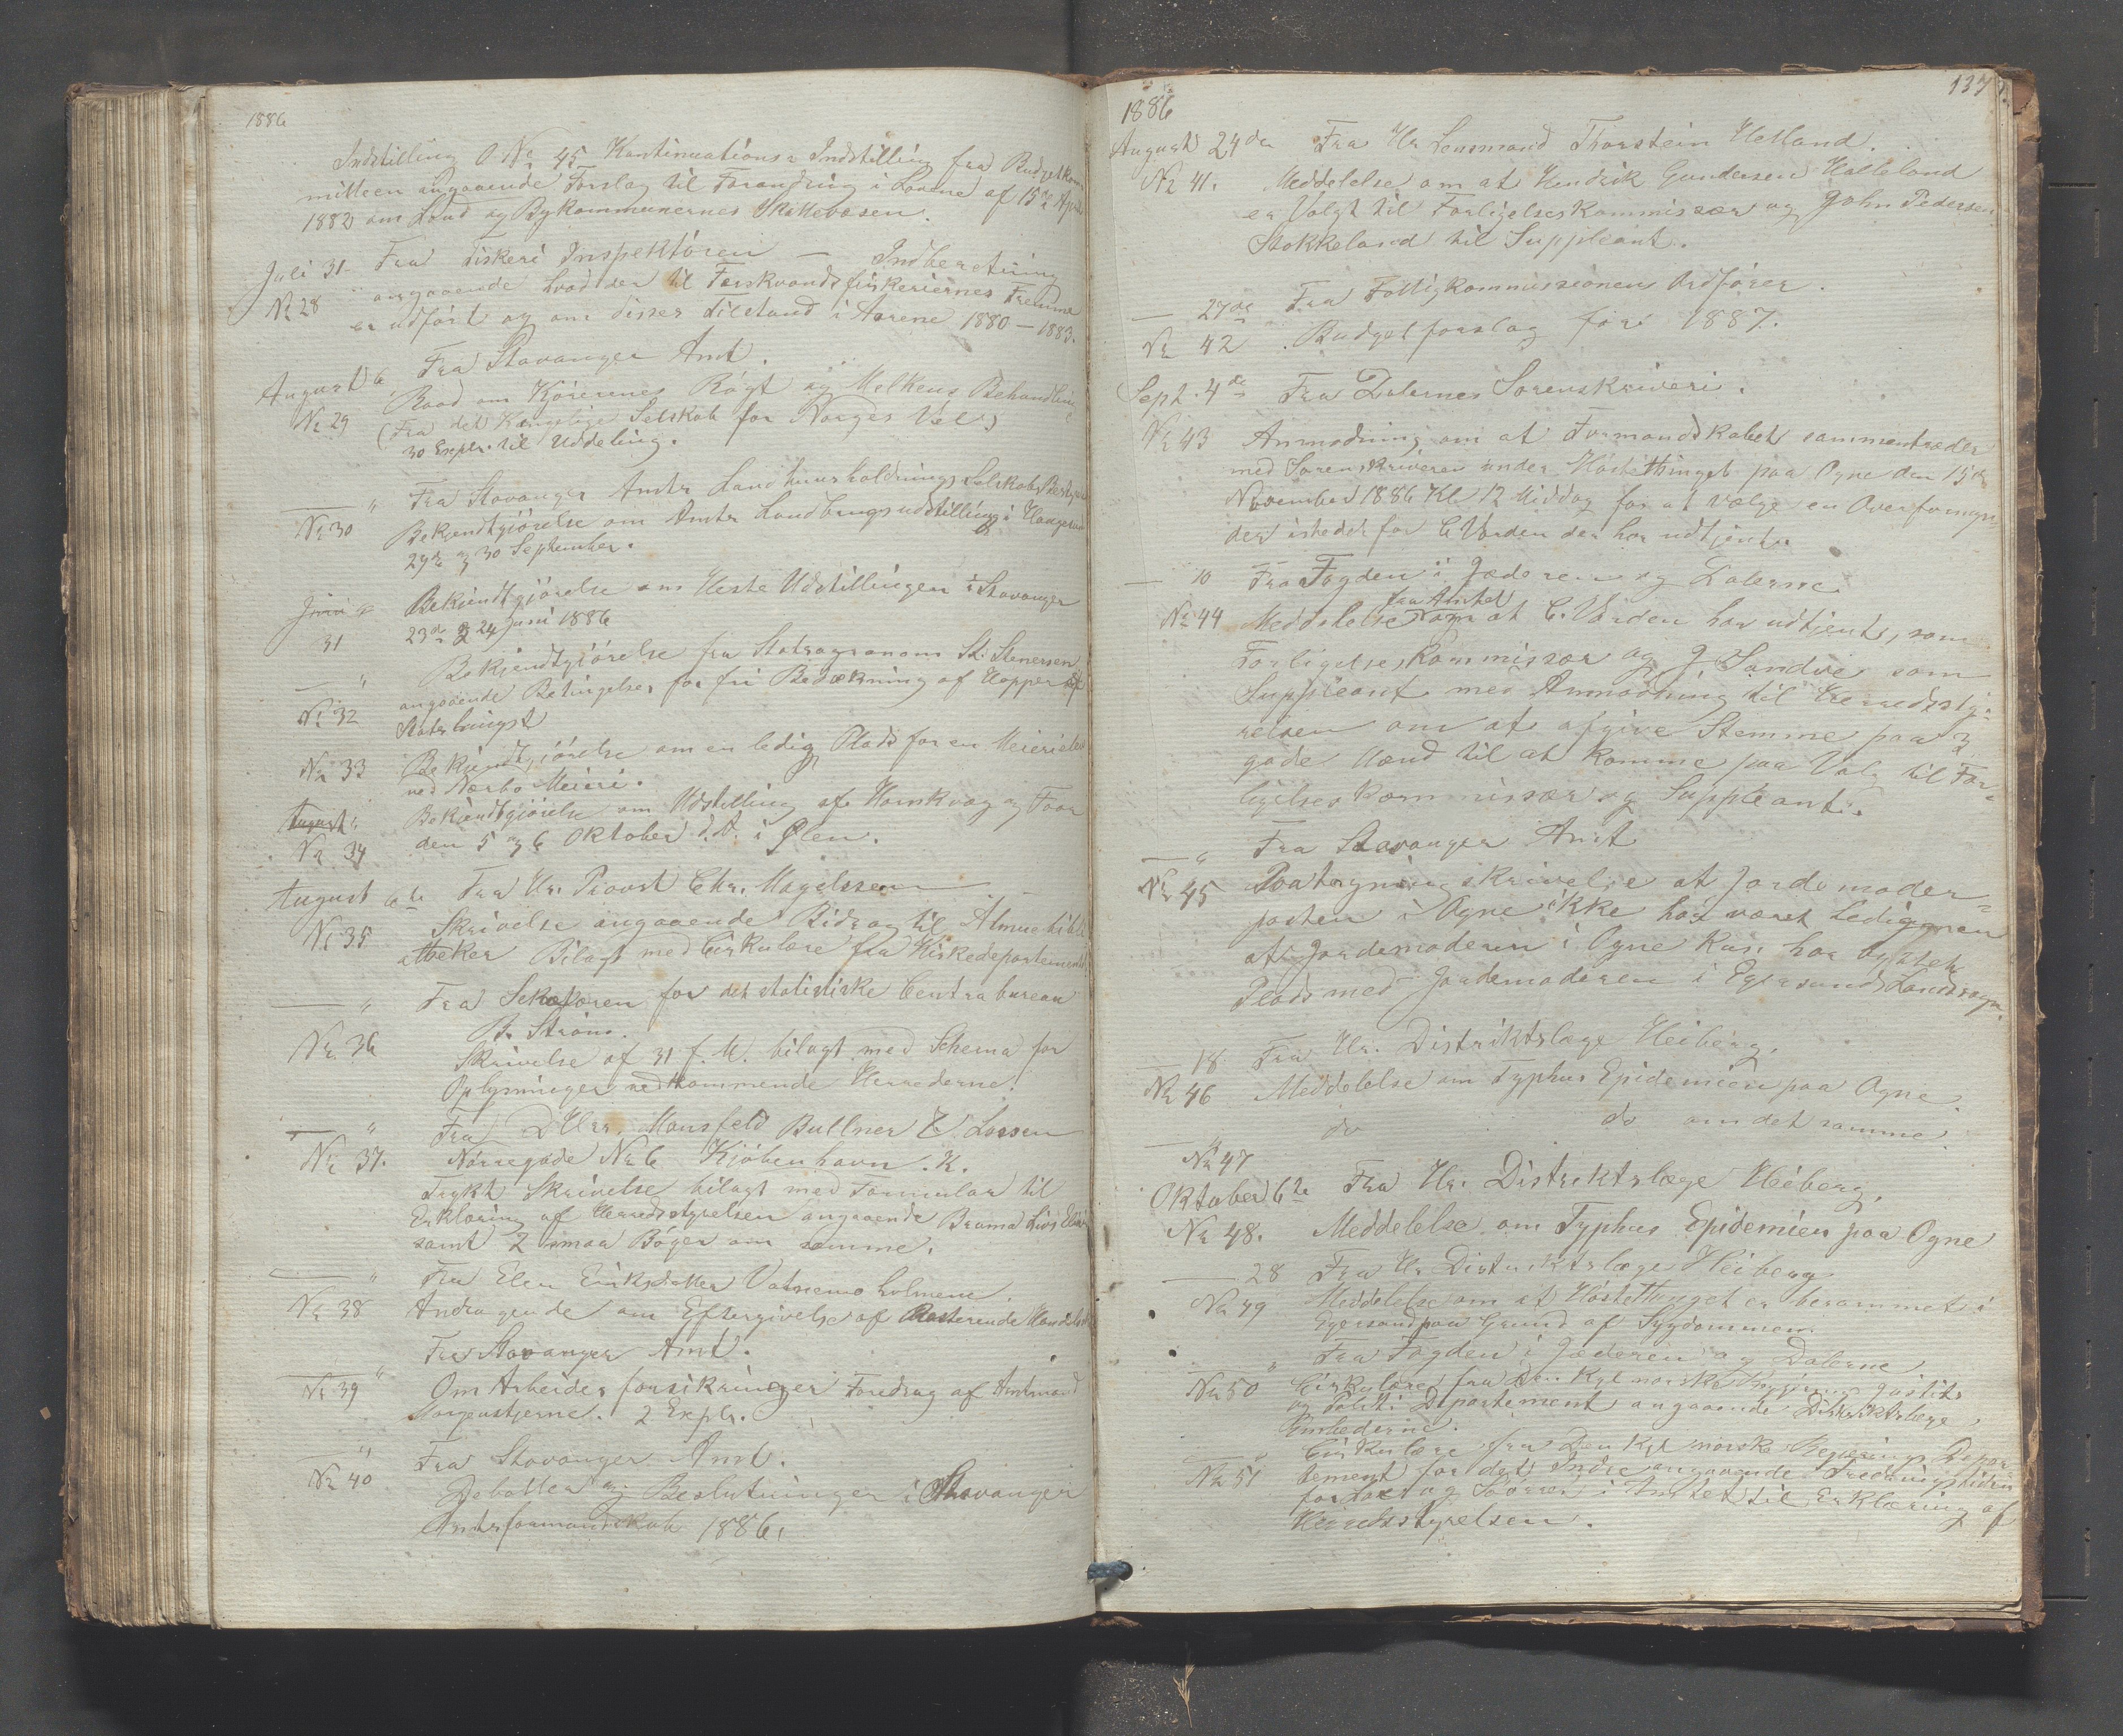 1886
Indstilling O. No 45 Kontinuations Indstilling fra Budgetkom
mitteen angaaende Forslag til Forandring i Lovene af 15de April
1882 om Land og Bykommunernes Skattevæsen.
Juli 31 Fra Fiskeri Inspektören — Indberetning
No 28 angaaende hvad der til Ferskvandsfiskeriernes Fremme
er udfört og om disses Tilstand i Aarene 1880 — 1883.
August 6 Fra Stavanger Amt.
No 29 Raad om Kjörenes Rögt og Melkens Behandling
(Fra det Kongelige Selskab for Norges Vel)
30 Expl. til Uddeling.
— " Fra Stavanger Amts Landhuusholdnings Selskabs Bestyrelse
No 30 Bekjendtgjörelse om Amts Landbrugsudstilling i Haugesund
29de og 30 September.
Juni Bekjendtgjörelse om Heste Udstillingen i Stavanger
31 23de og 24 Juni 1886
— " Bekjendtgjörelse fra Statsagronom St: Stenersen
No 32 angaaende Betingelser for fri Bedækning af Hopper af
Statshingst
No 33 Bekjendtgjörelse om en ledig Plads for en Meierielev
ved Nærbö Meieri.
August " Bekjendtgjörelse om Udstilling af Hornkvæg og Faar
No 34 den 5 og 6 Oktober d.A. i Ølen.
August 6te Fra Hr. Provst Chr. Magelssen
No 35 Skrivelse angaaende Bidrag til Almuebibli
otheker Bilagt med Cirkulære fra Kirkedepartementet
— " Fra Sekretæren for det statistiske Centralbureau
B. Ström.
No 36 Skrivelse af 31 f. M. bilagt med Schema for
Oplysninger vedkommende Herrederne.
— " Fra DHrr. Mansfeld Bullner & Lassen
No 37. Nörregade No 6 Kjöbenhavn. K.
Trykt Skrivelse bilagt med Formular til
Erklæring af Herredsstyrelsen angaaende Brama Livs Elixir
samt 2 smaa Böger om samme.
— " Fra Elen Eriksdatter Vatnemo holmene.
No 38 Andragende om Eftergivelse af Resterende
Fra Stavanger Amt.
No 39 " Om Arbeiderforsikringer Foredrag af Amtmand
Morgenstjerne. 2 Expl.
— " Fra Stavanger Amt.
No 40 Debatter og Beslutninger i Stavanger
Amtsformandskab 1886.
137
1886
August 24de Fra Hr Lensmand Thorstein Hetland.
No 41. Meddelelse om at Hendrik Gundersen Kalleland
er Valgt til Forligelseskommissær og John Pedersen
Stokkeland til Suppleant.
— 27de Fra Fattigkommissionens Ordförer.
No 42 Budgetforslag for 1887.
Sept. 4de Fra Dalernes Sorenskriveri.
No 43 Anmodning om at Formandskabet sammentræder
med Sorenskriveren under Hösttthinget paa Ogne den 15de
November 1886 Kl 12 Middag for at vælge en Overformyn
der istedet for C. Varden der har udtjent.
— 10 Fra Fogden i Jæderen og Dalerne
No 44 Meddelelse fra Amtet om at C. Varden har udtjent, som
Forligelseskommissær og J. Sandvie som
Suppleant med Anmodning til Herredssty-
relsen om at afgive Stemme paa 3
gode Mænd til at komme paa Valg til For-
ligelseskommissær og Suppleant.
— " Fra Stavanger Amt
No 45 Paategningsskrivelse at Jordemoder-
posten i Ogne ikke har været Ledig men
at Jordemoderen i Ogne kun har byttet
Plads med Jordemoderen i Egersunds Landsogn.
— 18 Fra Hr. Distriktslæge Heiberg.
No 46 Meddelelse om Typhus Epidemien paa Ogne
— " do do om det samme.
No 47
Oktober 6te Fra Hr. Distriktslæge Heiberg.
No 48. Meddelelse om Typhus Epidemien paa Ogne
— 28 Fra Hr Distriktslæge Heiberg
No 49 Meddelelse om at Höstthinget er berammet i
Egersund paa Grund af Sygdommen.
" Fra Fogden i Jæderen og Dalerne
No 50 Cirkulære fra Den Kgl norske Regjerings Justits
og Politi Departement angaaende Distriktslæge
Embederne.
" Cirkulære fra Den Kgl norske Regjerings Depar
No 51 tement for det Indre angaaende Fredningstiden
for Lax og Söörret i Amtet til Erklæring af
Herredsstyrelsen.